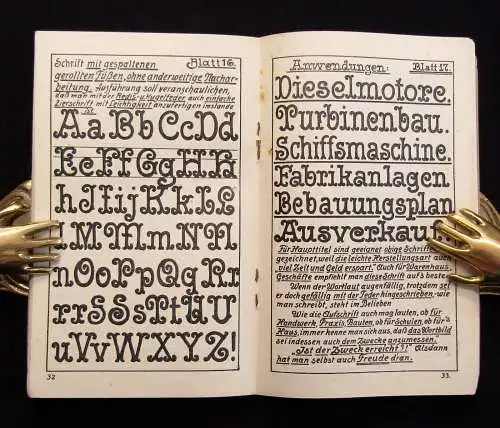 Schrift mit gespaltenen Blatt 16.
gerollten Füßen, ohne anderweitige Nachar-
beitung. Ausführung soll veranschaulichen,
daß man mit der Redis- u. Kugelfeder auch einfache
Zierschrift mit Leichtigkeit anzufertigen imstande
ist.
Aa Bb Cc Dd
Ee Ff Gg Hh
h Ii j Kk Ll
l M Mm n N n
Oo Pp Qq Rr
rr S Ss Tt U U
u Vv W X Y Z !
32
Anwendungen: Blatt 17.
Dieselmotore.
Turbinenbau.
Schiffsmaschine.
Fabrikanlagen
Bebauungsplan
Ausverkauf.
Für Haupttitel sind geeignet obige Schriften
gezeichnet, weil die leichte Herstellungsart auch
viel Zeit und Geld erspart." Auch für Warenhaus
Geschäfte empfiehlt man diese Schrift auf's beste
Wenn der Wortlaut augenfällig, trotzdem sei
er doch gefällig mit der Feder hingeschrieben, wie
man schreibt, steht im Belieben
Wie die Aufschrift auch mag lauten, ob für
Handwerk, Praxis, Bauten, ob für Schulen, ob für's
Haus, immer kenne man sich aus, daß das Wortbild
sei indessen auch dem Zwecke anzumessen."
"Ist der Zweck erreicht?!" Alsdann
hat man selbst auch Freude dran.
33